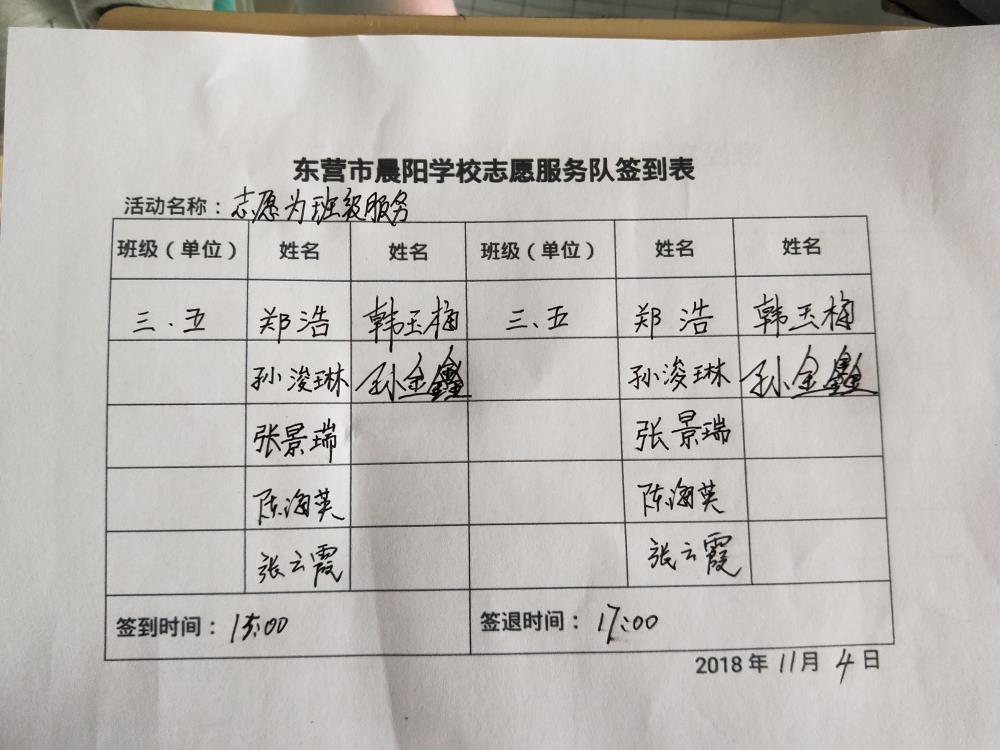 东营市晨阳学校志愿服务队签到表
活动名称：志愿为班级服务
班级（单位） 姓名 姓名 班级（单位） 姓名 姓名
三、五 郑浩 韩玉梅 三、五 郑浩 韩玉梅
孙浚琳 孙金鑫 孙浚琳 孙金鑫
张景瑞 张景瑞
陈海英 陈海英
张云霞 张云霞
签到时间：15:00 签退时间：17:00
2018年11月4日